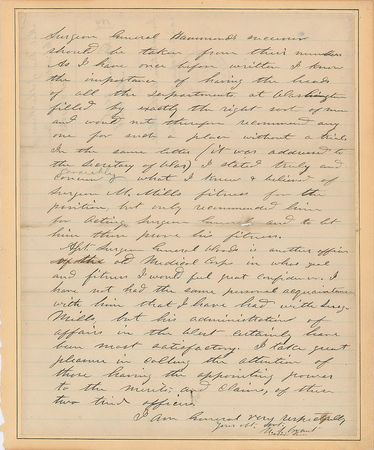 Surgeon General Hammond's successor
should be taken from their number
As I have once before written I know
the importance of having the heads
of all the departments at Washington
filled by exactly the right sort of men
and would not therefore recommend any
one for such a place without a trial.
In the same letter (it was addressed to
the Secretary of War) I stated truly and
what I knew & believed of
Surgeon M. Mills fitness for the
position, but only recommended him
for Acting Surgeon General and to let
him there prove his fitness.
Asst. Surgeon General Wood is another officer
of the old Medical Corps in whose zeal
and fitness I would feel great confidence. I
have not had the same personal acquaintance
with him that I have had with Surg.
Mills but his administration of
affairs in the West certainly have
been most satisfactory. I take great
pleasure in calling the attention of
those having the appointing power
to the merits, and claims, of these
two tried officers
I am General very respectfully
your obt. svt.
U. S. Grant